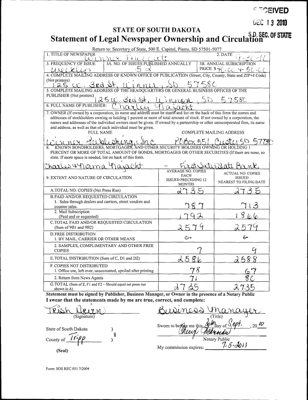 RECEIVED
DEC 13 2010
S.D. SEC. OF STATE
STATE OF SOUTH DAKOTA
Statement of Legal Newspaper Ownership and Circulation
Return to: Secretary of State, 500 E. Capitol, Pierre, SD 57501-5077
1. TITLE OF NEWSPAPER
2. DATE
Winner Advocate
3. FREQUENCY OF ISSUE
3A. NO. OF ISSUES PUBLISHED ANNUALLY
3B. ANNUAL SUBSCRIPTION PRICE
Weekly
52
4. COMPLETE MAILING ADDRESS OF KNOWN OFFICE OF PUBLICATION (Street, City, County, State and ZIP+4 Code) (Not printers)
125 W. 3rd St. Winner, SD 57580
5. COMPLETE MAILING ADDRESS OF THE HEADQUARTERS OF GENERAL BUSINESS OFFICES OF THE PUBLISHER (Not printers)
125 W. 3rd St. Winner, SD 57580
6. FULL NAME OF PUBLISHER:
Charley Najacht
7. OWNER (If owned by a corporation, its name and address must be stated and also list on the back of this form the names and addresses of stockholders owning or holding 1 percent or more of total amount of stock. If not owned by a corporation, the names and addresses of the individual owners must be given. If owned by a partnership or other unincorporated firm, its name and address, as well as that of each individual must be given.
FULL NAME
COMPLETE MAILING ADDRESS
Winner Publishing, Inc.
PO Box 551 Custer SD 57730
8. KNOWN BONDHOLDERS, MORTGAGEES AND OTHER SECURITY HOLDERS OWNING OR HOLDING 1 PERCENT OR MORE OF TOTAL AMOUNT OF BONDS, MORTGAGES OR OTHER SECURITIES (If there are none, so state. If more space is needed, list on back of this form.
First Bank
9. EXTENT AND NATURE OF CIRCULATION
AVERAGE NO. COPIES EACH ISSUED PRECEDING 12 MONTHS
ACTUAL NO. COPIES ISSUED NEAREST TO FILING DATE
A. TOTAL NO. COPIES (Net Press Run)
2735
2735
B. PAID AND/OR REQUESTED CIRCULATION
1. Sales through dealers and carriers, street vendors and counter sales.
787
713
2. Mail Subscription (Paid and or requested)
1792
1866
C. TOTAL PAID AND/OR REQUESTED CIRCULATION (Sum of 9B1 and 9B2)
2579
2579
D. FREE DISTRIBUTION
1. BY MAIL, CARRIER OR OTHER MEANS
0
0
2. SAMPLES, COMPLIMENTARY AND OTHER FREE COPIES
7
9
E. TOTAL DISTRIBUTION (Sum of C, D1 and D2)
2586
2588
F. COPIES NOT DISTRIBUTED
1. Office use, left over, unaccounted, spoiled after printing
78
67
2. Return from News Agents
71
80
G. TOTAL (Sum of E, F1 and F2 - Should equal net press run shown in A)
2735
2735
Statement must be signed by Publisher, Business Manager, or Owner in the presence of a Notary Public
I swear that the statements made by me are true, correct, and complete:
Business Manager
(Signature)
(Title)
State of South Dakota )
County of Tripp )
Sworn to before me this day of Sept. 2010
Notary Public
(Seal)
My commission expires: 7-5-2011
Form: SOS REC 051 7/2009